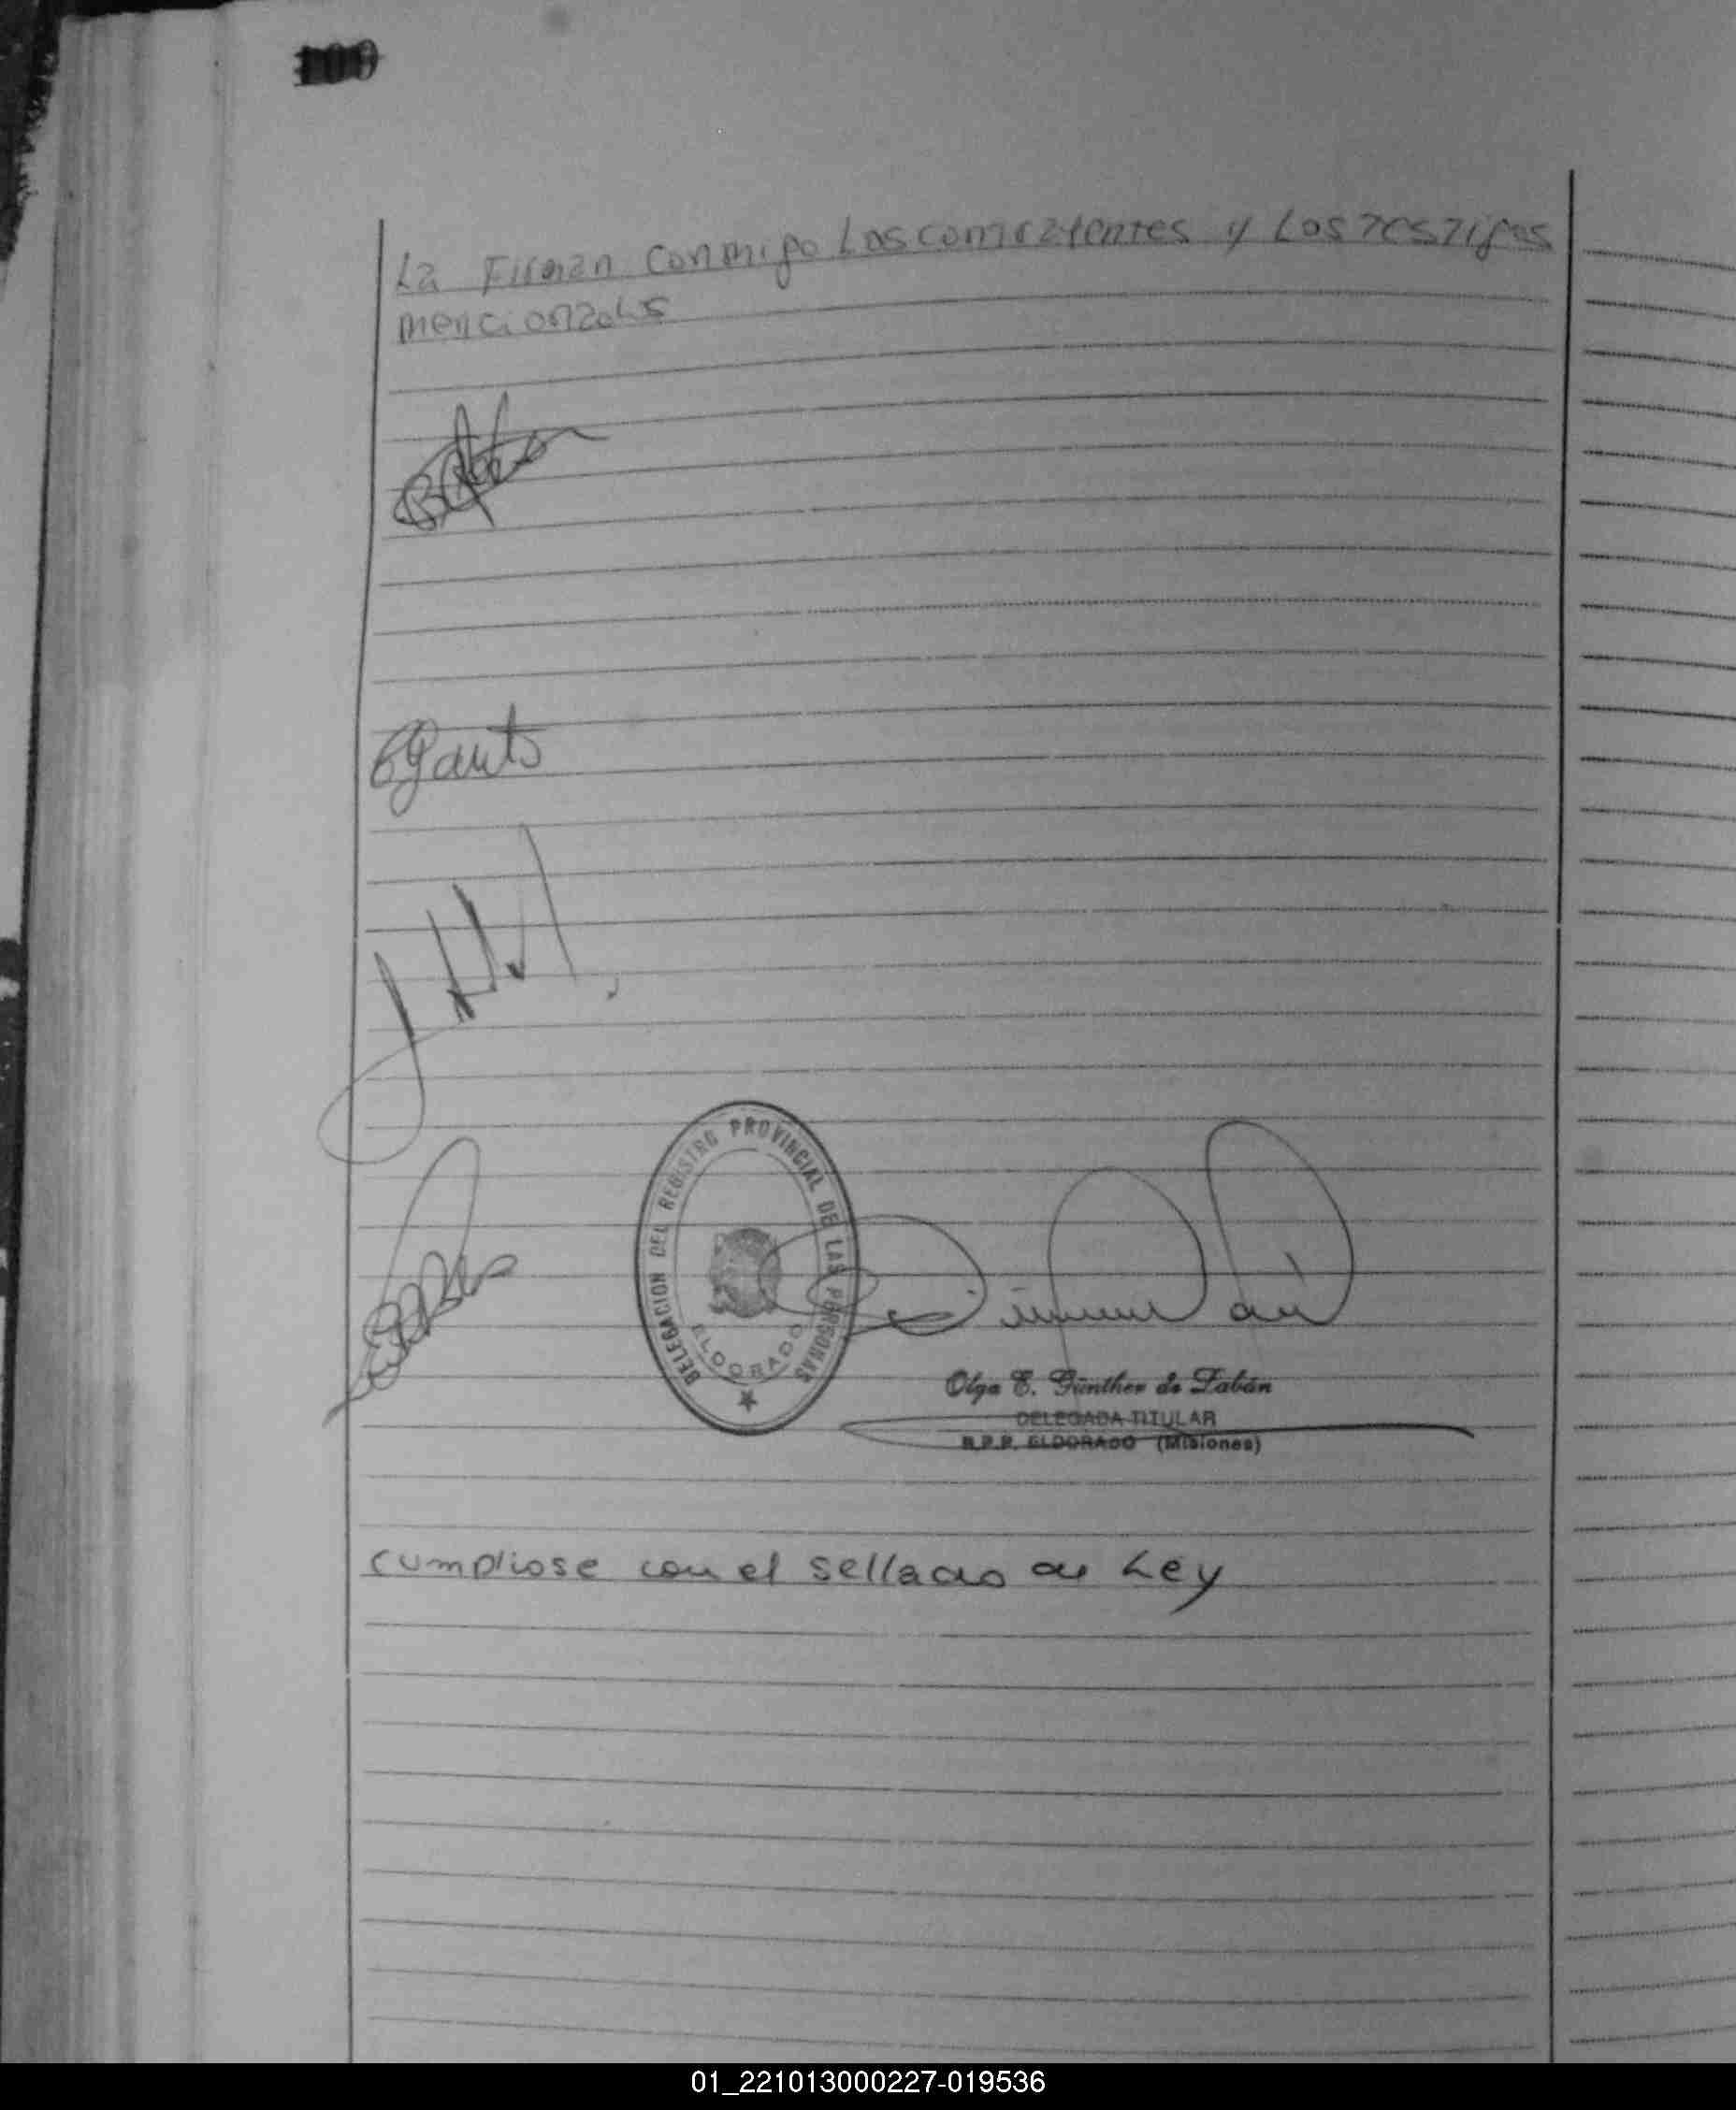 100
La Firman conmigo Los contrayentes y Los Testigos
mencionados
DELEGACION DEL REGISTRO PROVINCIAL DE LAS PERSONAS
ELDORADO
Olga E. Günther de Fabán
DELEGADA TITULAR
R.P.P. ELDORADO (Misiones)
cumpliose con el sellado de Ley
01_221013000227-019536